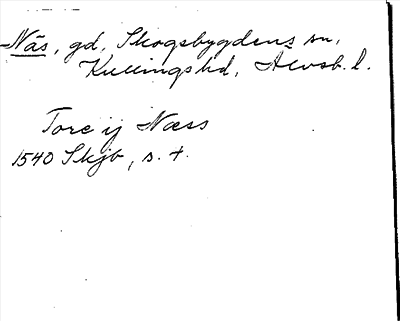 Näs, gd, Skogsbygdens sn,
Kullings hd, Älvsb. l.
Tore ij Næss
1540 Skjb, s. 7.